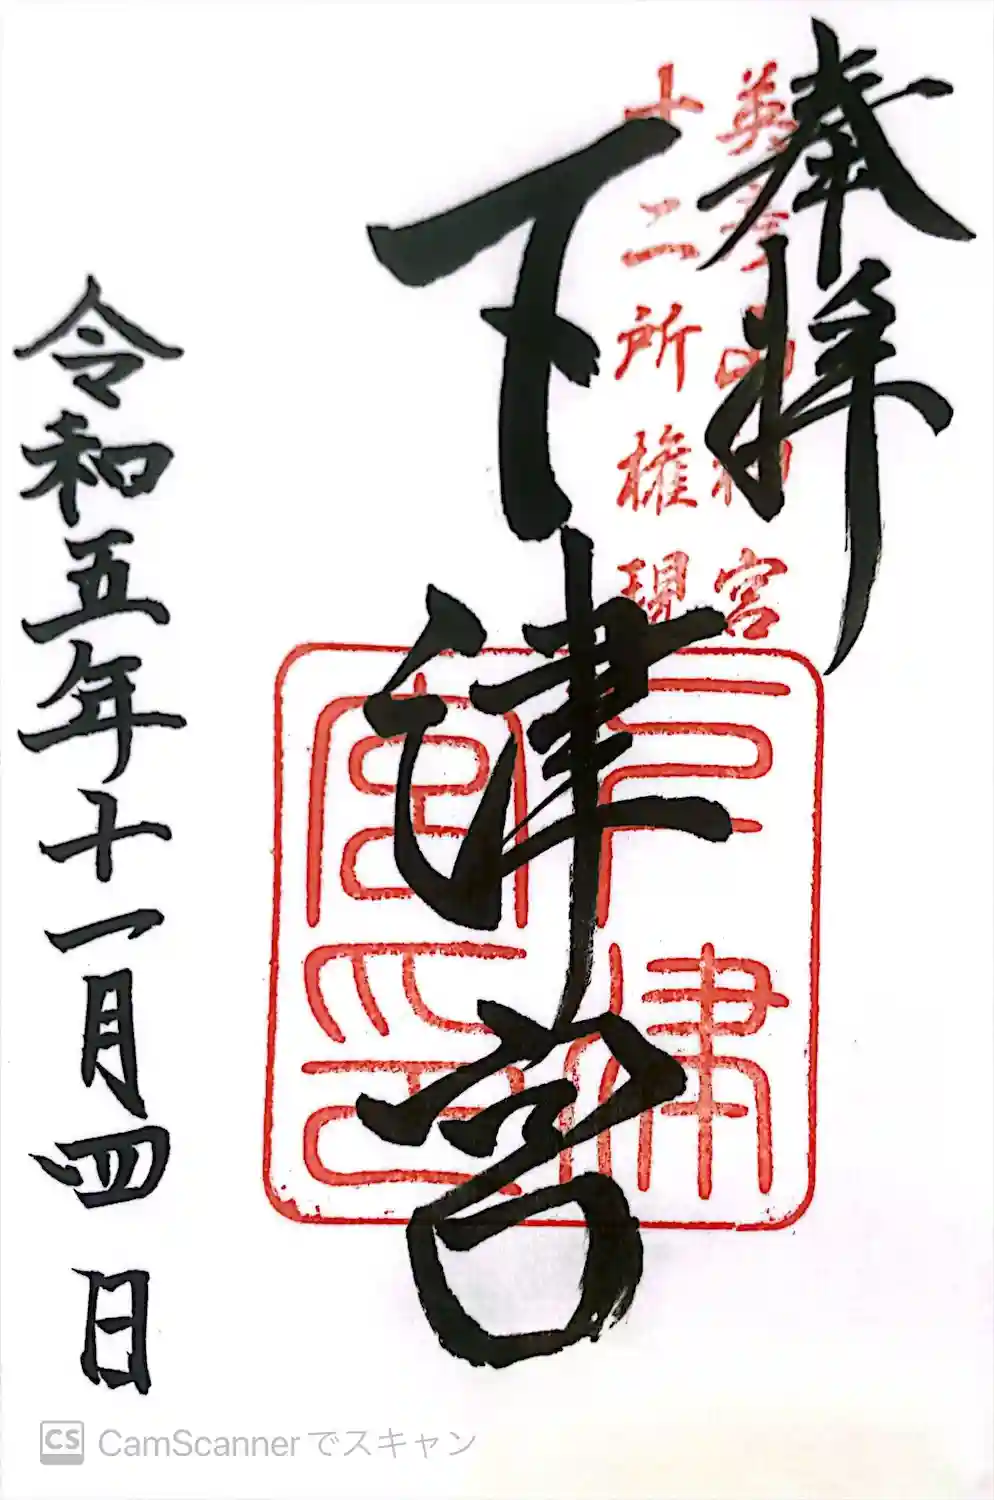 奉拝
英彦山神宮
十二所権現
下津宮
下津宮印
令和五年十一月四日
CS CamScannerでスキャン